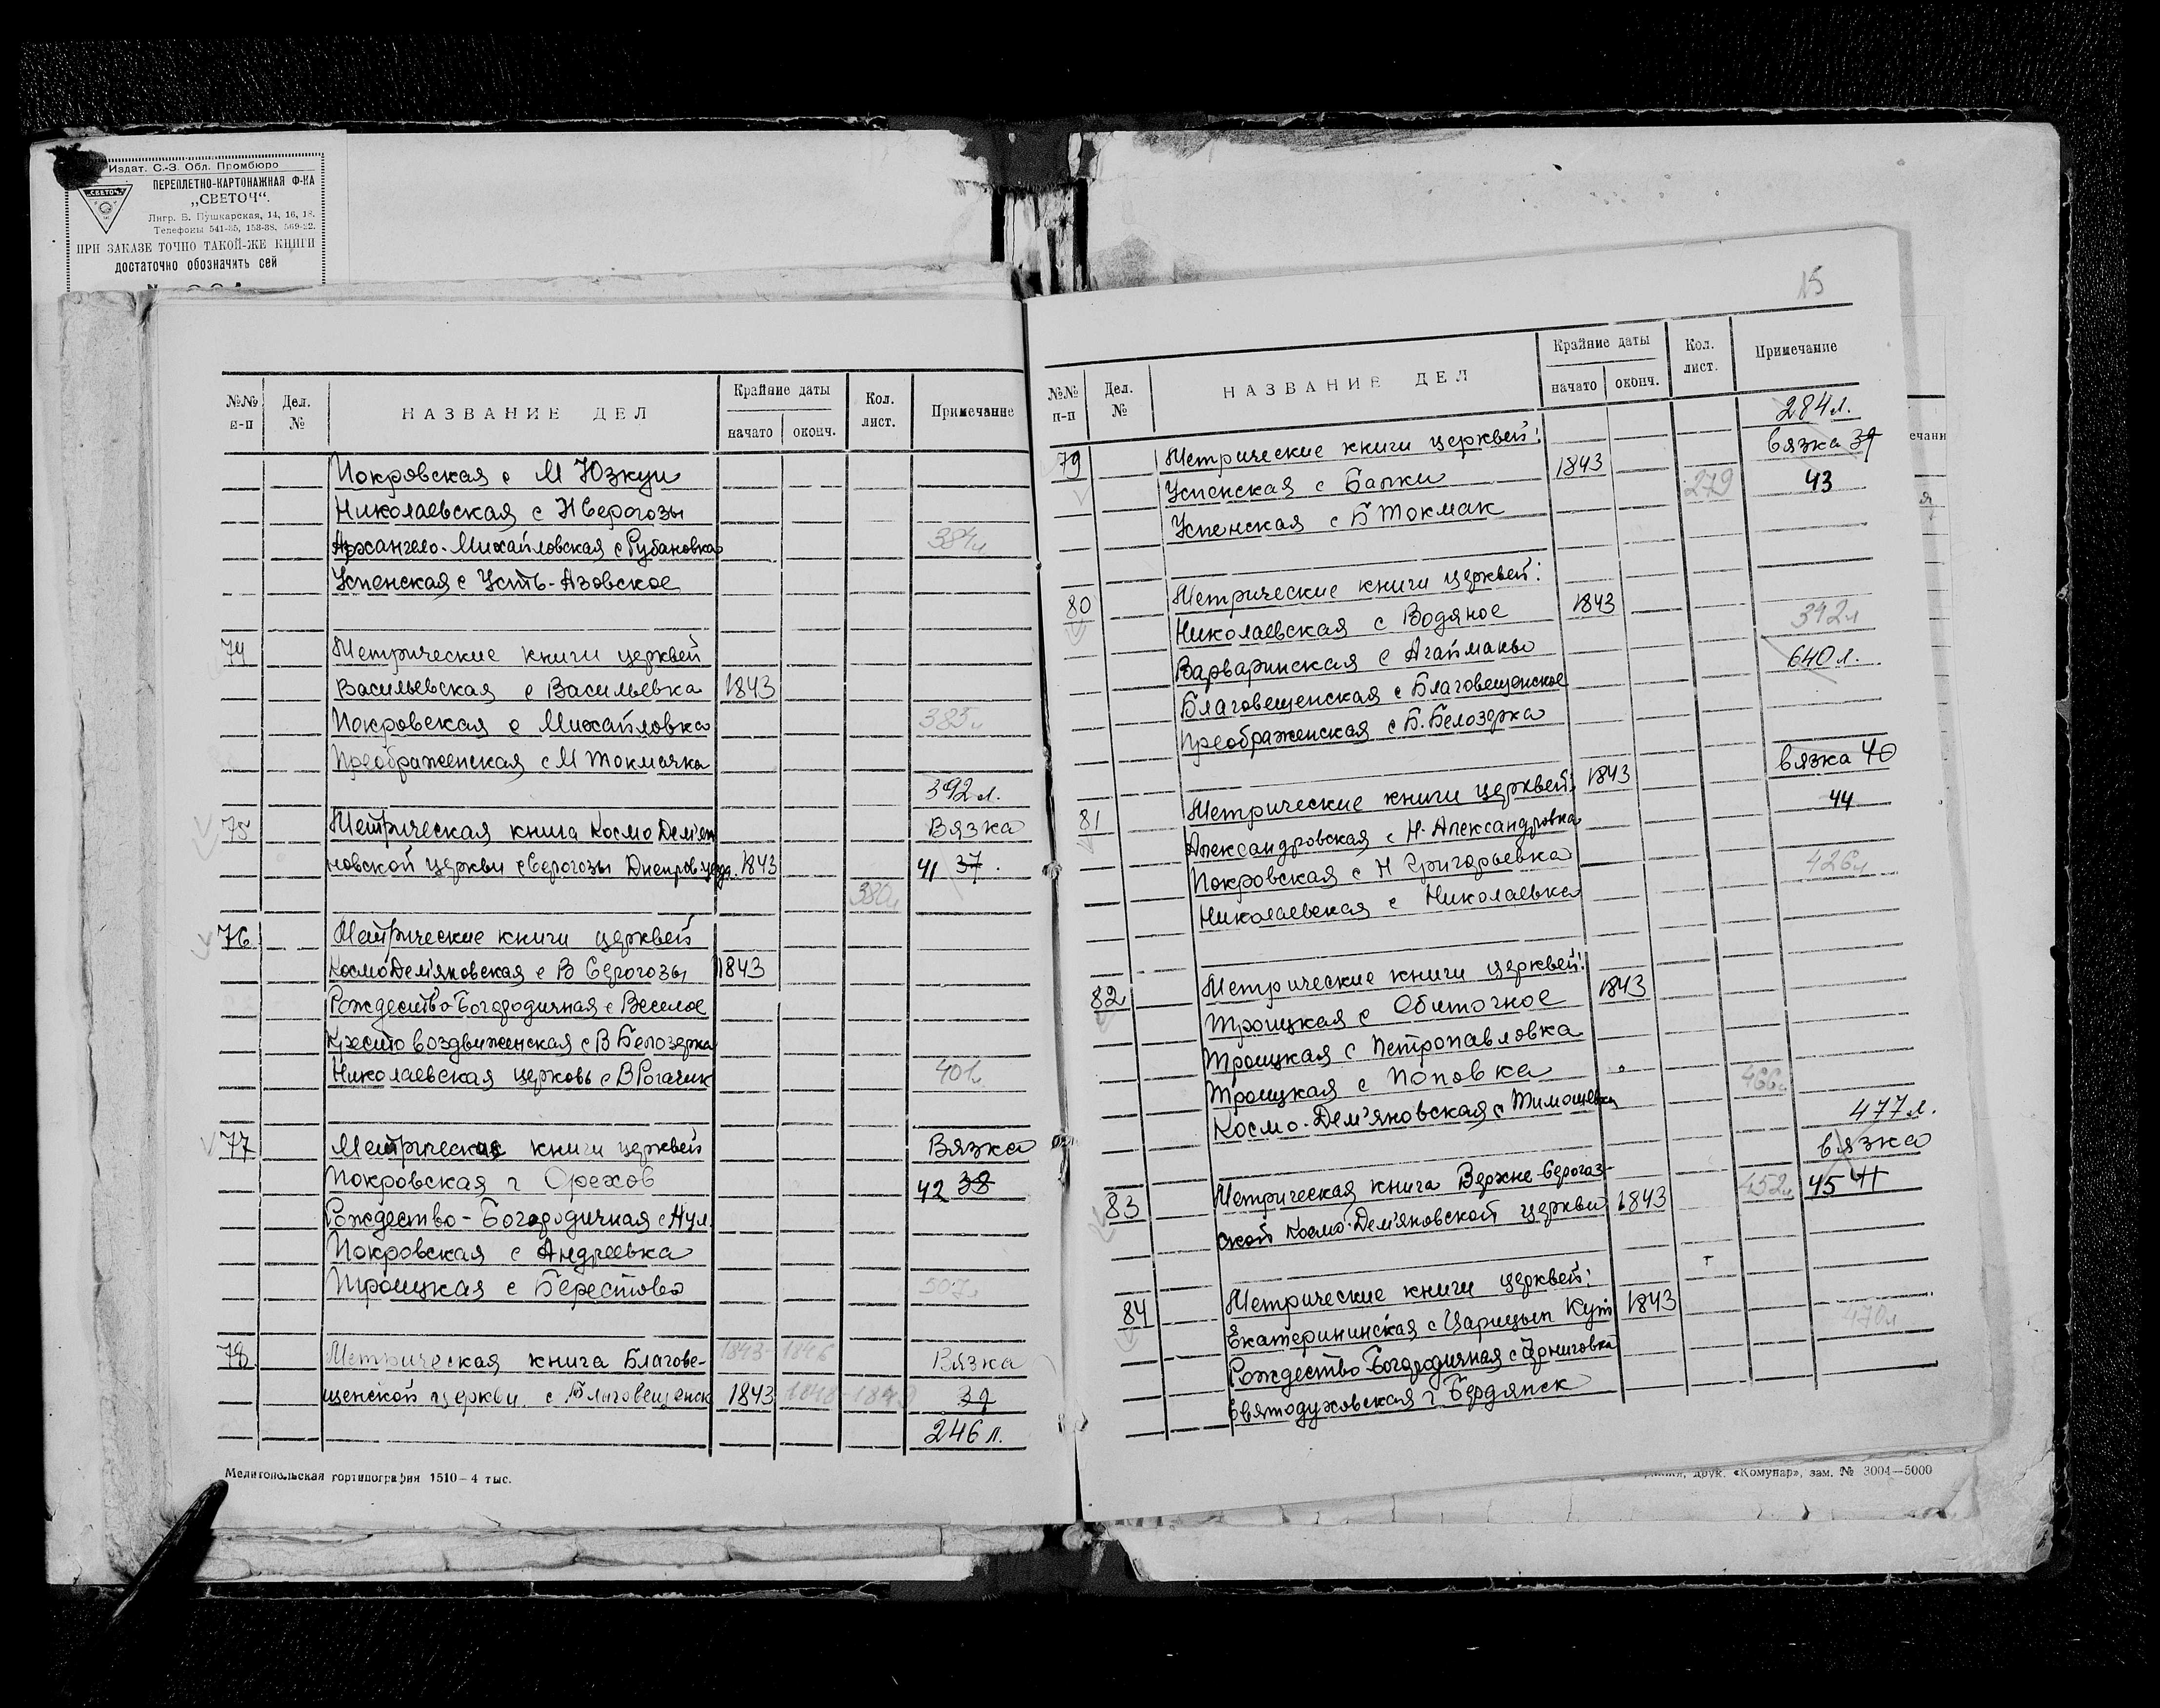 Издат. С.-З. Обл. Промбюро
ПЕРЕПЛЕТНО-КАРТОНАЖНАЯ Ф-КА
„СВЕТОЧ“.
СВЕТОЧ
Лнгр. Б. Пушкарская, 14, 16, 18.
Телефоны 541-35, 153-38, 569-22.
ПРИ ЗАКАЗЕ ТОЧНО ТАКОЙ-ЖЕ КНИГИ
ДОСТАТОЧНО ОБОЗНАЧИТЬ СЕЙ
№№ п-п Дел. № НАЗВАНИЕ ДЕЛ Крайние даты начато оконч. Кол. лист. Примечание
Покровская с М Юзкуи
Николаевская с Н Серогозы
Архангело-Михайловская с Рубановка 384 л
Успенская с Усть-Азовское
74 Метрические книги церквей
Васильевская с Васильевка 1843
Покровская с Михайловка 385 л
Преображенская с М Токмачка
392 л.
75 Метрическая книга Космо Дем'ян Вязка
новской церкви с Серогозы Днепров. уезда. 1843 41 37.
380 л
76 Метрические книги церквей
Космо Дем'яновская с В Серогозы 1843
Рождество Богородичная с Веселое
Кресто воздвиженская с В Белозерка
Николаевская церковь с В Рогачик 401 л
77 Метрические книги церквей Вязка
Покровская г Орехов 42 38
Рождество-Богородичная с Жул.
Покровская с Андреевка
Троицкая с Берестово 507 л
78 Метрическая книга Благове- 1843-1846 Вязка
щенской церкви с Благовещенск 1843 39
246 л.
Мелитопольская гортипография 1510—4 тыс.
15
№№ п-п Дел. № НАЗВАНИЕ ДЕЛ Крайние даты начато оконч. Кол. лист. Примечание
284 л.
79 Метрические книги церквей: Вязка 39
Успенская с Балки 1843 279 43
Успенская с Б Токмак
80 Метрические книги церквей:
Николаевская с Водяное 1843 342 л
Варваринская с Агайманы 640 л.
Благовещенская с Благовещенское
Преображенская с Б. Белозерка
вязка 40
81 Метрические книги церквей: 1843 44
Александровская с Н-Александровка
Покровская с Н Григорьевка 426 л
Николаевская с Николаевка
82 Метрические книги церквей:
Троицкая с Обиточное 1843
Троицкая с Петропавловка
Троицкая с Поповка 466 л
Космо-Дем'яновская с Тимошевка
477 л.
вязка
83 Метрическая книга Верхне-Серогоз- 452 л 45 41
ской Космо-Дем'яновской церкви 1843
84 Метрические книги церквей:
Екатерининская с Царицын Кут 1843
Рождество Богородичная с Черниговка 470 л
Святодуховская г Бердянск
друк. «Комунар», зам. № 3004—5000